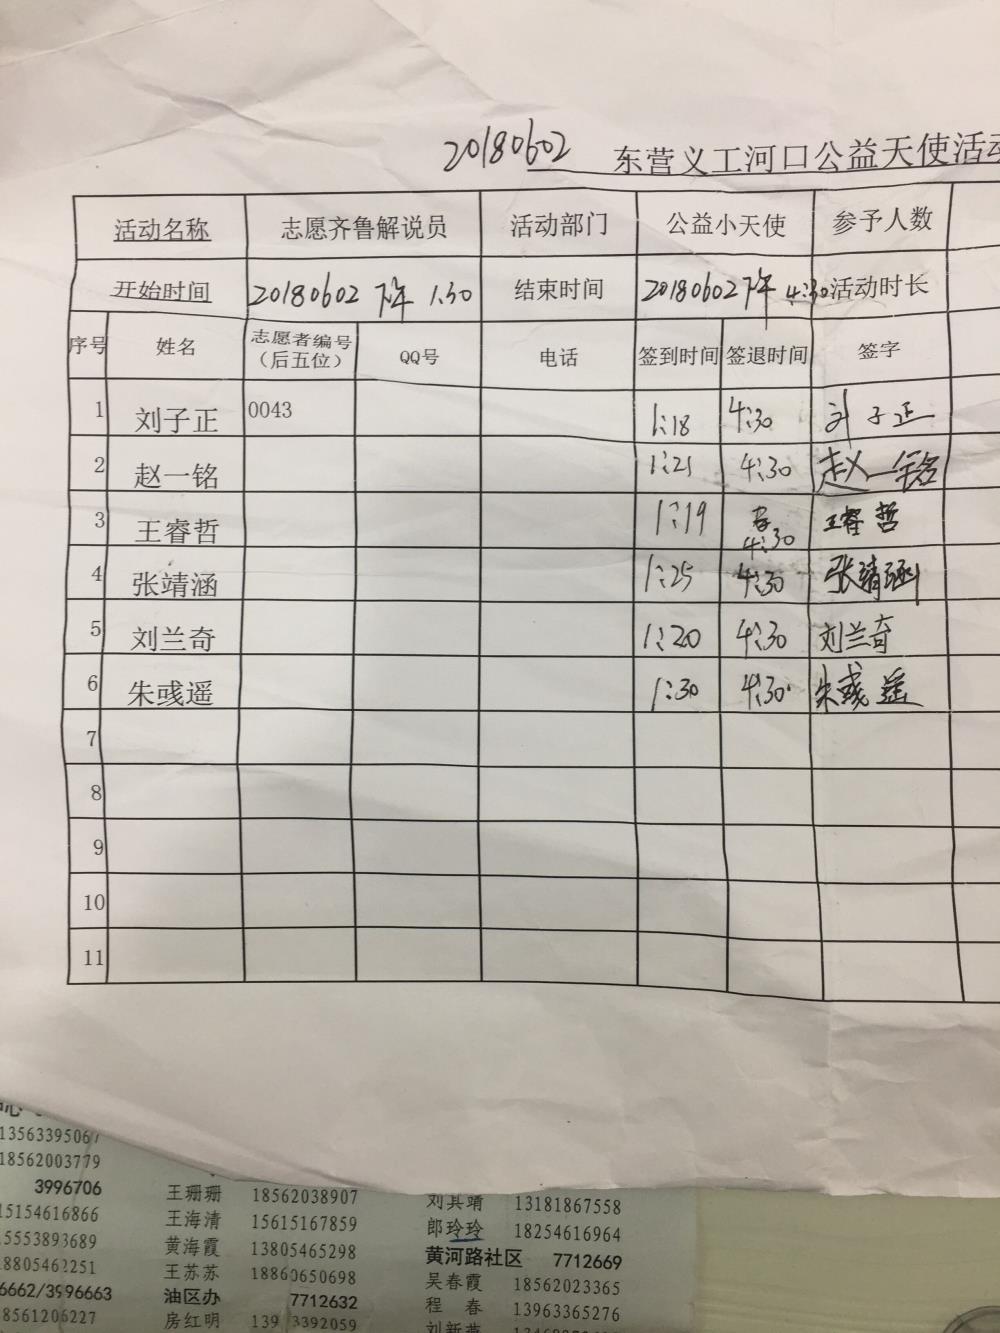 20180602 东营义工河口公益天使活动
活动名称 志愿齐鲁解说员 活动部门 公益小天使 参予人数
开始时间 20180602 下午 1:30 结束时间 20180602 下午 4:30 活动时长
序号 姓名 志愿者编号（后五位） QQ号 电话 签到时间 签退时间 签字
1 刘子正 0043 1:18 4:30 刘子正
2 赵一铭 1:21 4:30 赵一铭
3 王睿哲 1:19 4:30 王睿哲
4 张靖涵 1:25 4:30 张靖涵
5 刘兰奇 1:20 4:30 刘兰奇
6 朱彧遥 1:30 4:30 朱彧遥
7
8
9
10
11
13563395067
18562003779
3996706 王珊珊 18562038907 刘其靖 13181867558
15154616866 王海清 15615167859 郎玲玲 18254616964
15553893689 黄海霞 13805465298 黄河路社区 7712669
18805462251 王苏苏 18860650698 吴春霞 18562023365
6662/3996663 油区办 7712632 程 春 13963365276
18561206227 房红明 3392059